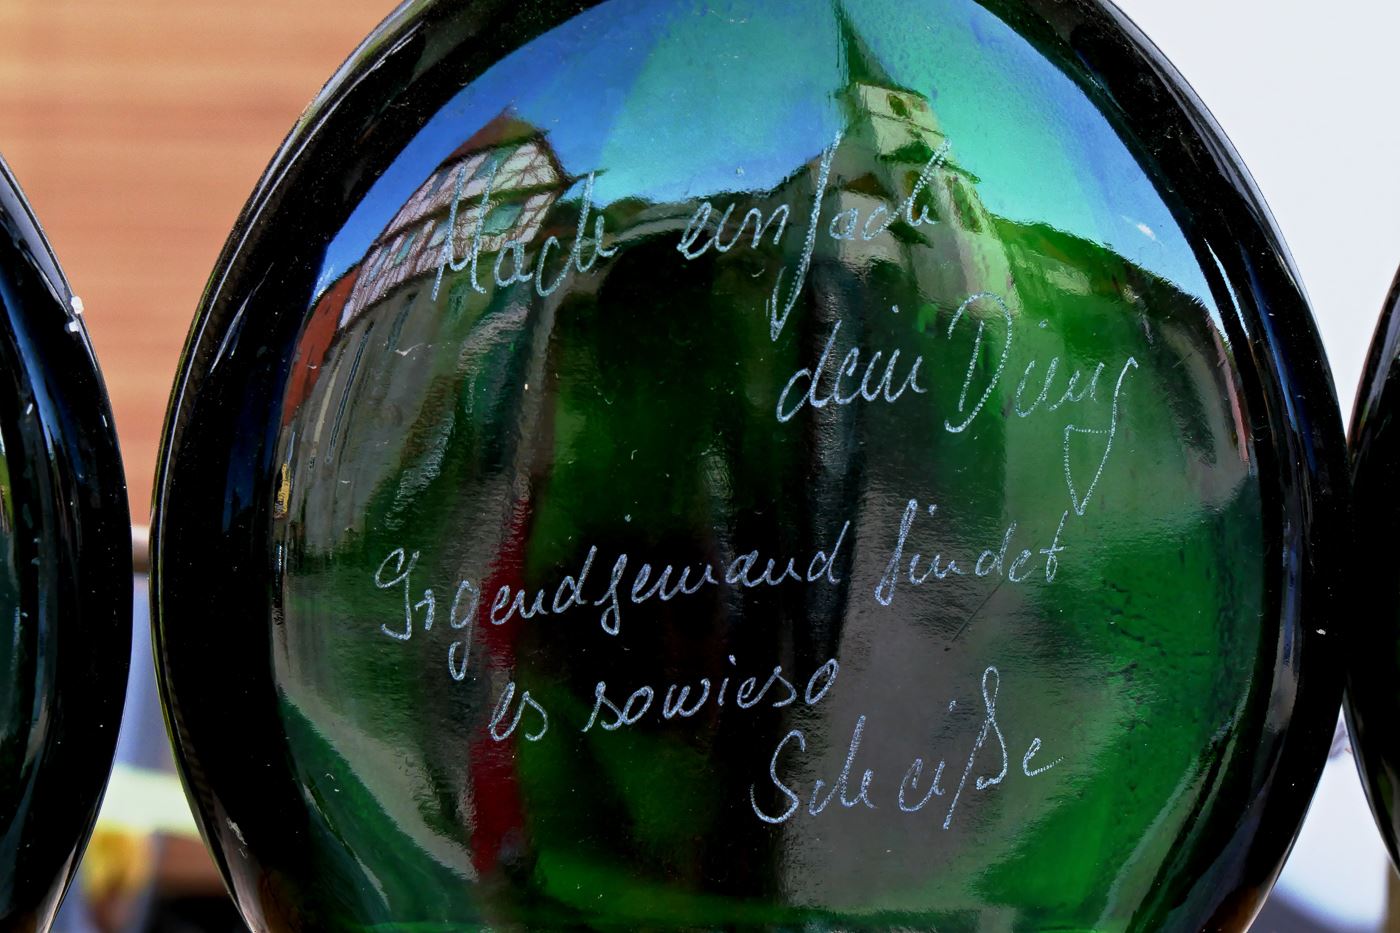 Mach einfach
dein Ding
Irgendjemand findet
es sowieso
Scheiße